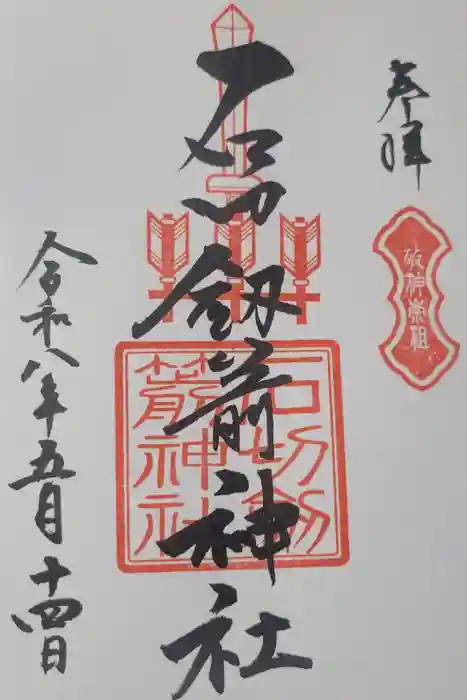 奉拝
敬神崇祖
石切剣箭神社
石切劔
箭神社
令和八年五月十四日